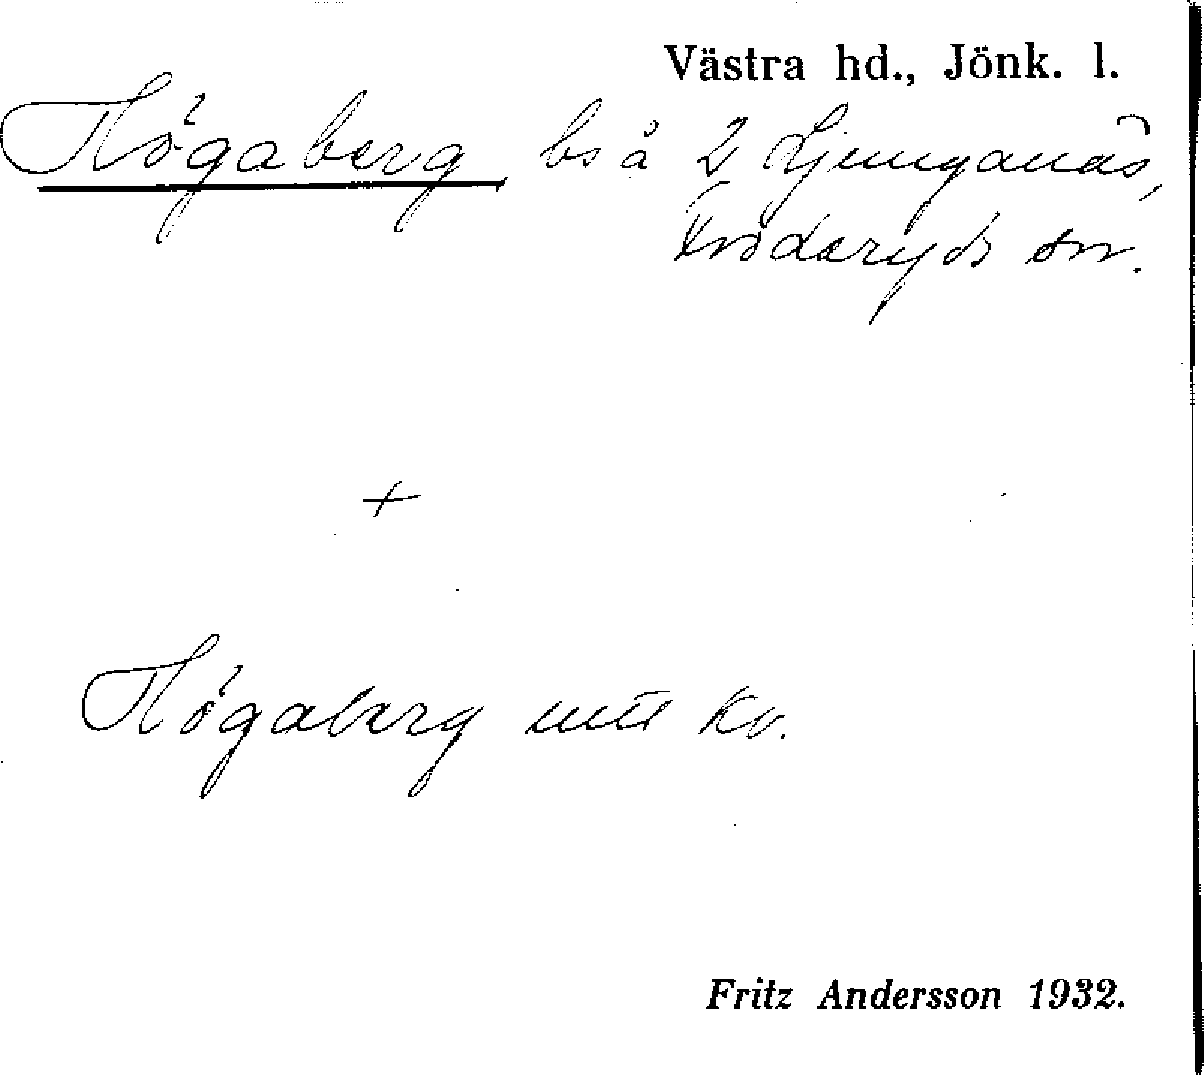 Västra hd., Jönk. l.
Högaberg bs å 2 Ljunganäs,
Fröderyds sn.
+
Högaberg Kv.
Fritz Andersson 1932.